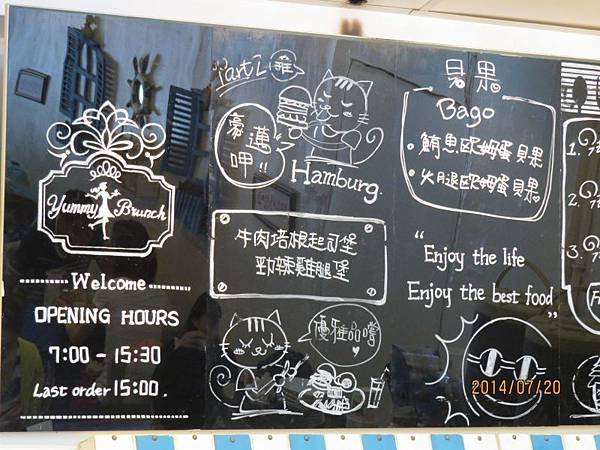 Yummy Brunch
Welcome
OPENING HOURS
7:00 - 15:30
Last order 15:00.
Part 2
豪邁
呷!!
Hamburg.
牛肉培根起司堡
勁辣雞腿堡
優雅品嚐
Bago
鮪魚歐姆蛋貝果
火腿歐姆蛋貝果
"Enjoy the life
Enjoy the best food"
1.
2.
3.
2014/07/20